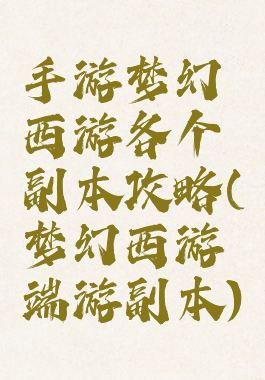 手游梦幻
西游各个
副本攻略(
梦幻西游
端游副本)